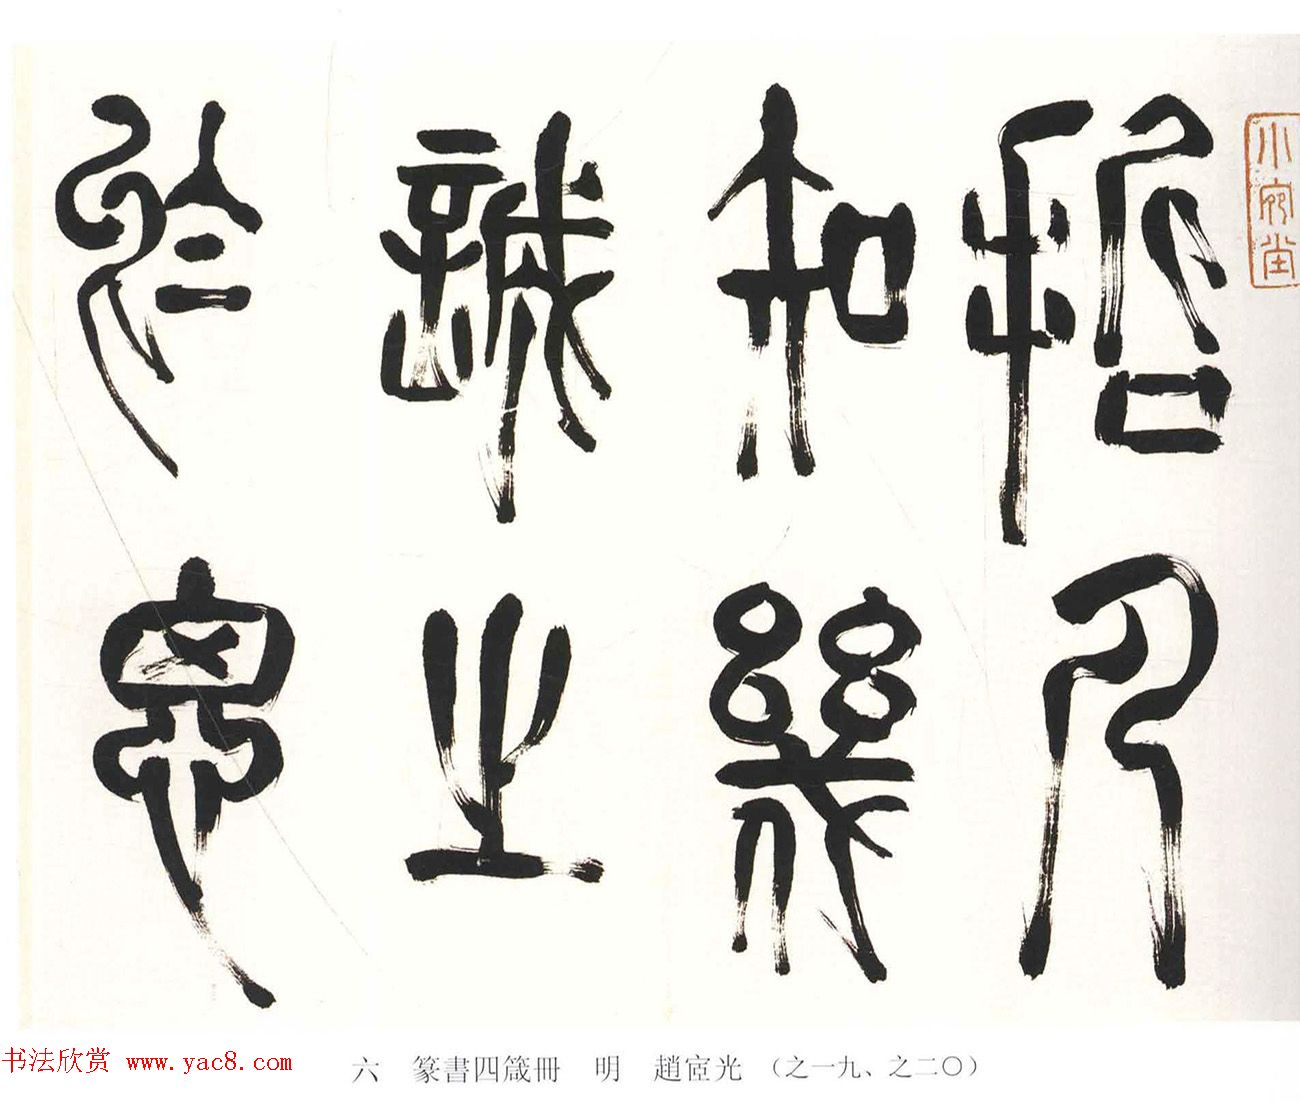 哲人
知幾
誠之
於思
小宛堂
六　篆書四箴冊　明　趙宧光　（之一九、之二〇）
书法欣赏 www.yac8.com